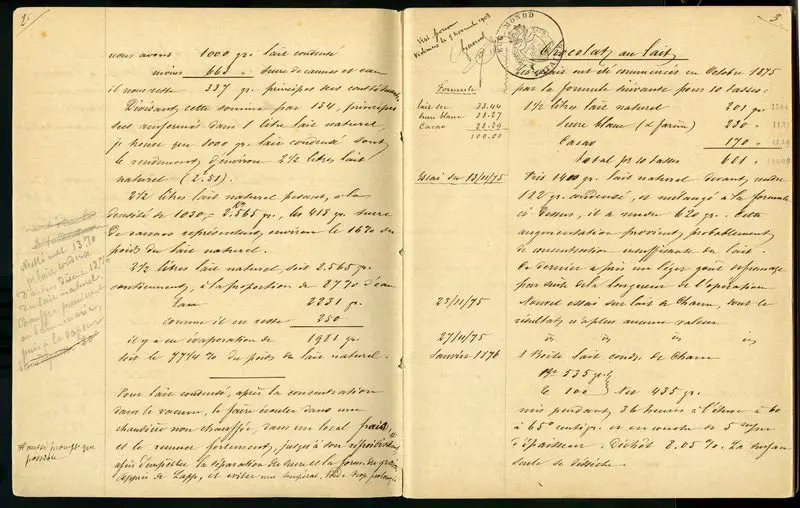 2
nous avons 1000 gr. lait condensé
moins 663 " sucre de cannes et eau
il nous reste 337 gr. principes des constituants
Divisant cette somme par 134, principes
secs renfermés dans 1 litre lait naturel,
je trouve que 1000 gr. lait condensé sont
le rendement d'environ 2 1/2 litres lait
naturel (2.51).
2 1/2 litres lait naturel pesant, à la
densité de 1030 = 2.565 gr., les 413 gr. sucre
de cannes représentent, environ le 16% du
poids du lait naturel.
2 1/2 litres lait naturel, soit 2.565 gr
contiennent, à la proportion de 87% d'eau
Eau 2231 gr.
comme il en reste 250
il y a eu évaporation de 1981 gr.
soit le 77 1/4 % du poids de lait naturel.
Nestlé met 13%
lait condensé
12%
du lait naturel
Chauffer
au bain-marie,
puis à la vapeur
Pour lait condensé, après la concentration
dans le vacuum, le faire écouler dans une
chaudière non chauffée dans un local frais
et le remuer fortement, jusqu'à son refroidissement
afin d'empêcher la séparation du sucre et la forme de
et éviter une
# aussi prompt que
possible
3
novembre 1908
MONOD
Chocolat au lait
Les essais ont été commencés en Octobre 1875
par la formule suivante pour 10 tasses:
Formule
lait sec 33.44
sucre blanc 38.27
Cacao 28.29
100.00
1 1/2 litres lait naturel 201 gr.
Sucre blanc (à farine) 230 "
Cacao 170 "
Total pr 10 tasses 601 "
Essai du 13/11/75
Pris 1400 gr. lait naturel devant rendre
182 gr. condensé, et mélangé à la formule
ci dessus, il a rendu 620 gr. Cette
augmentation provient probablement
de concentration insuffisante du lait.
Ce dernier a pris un léger goût
par suite de la longueur de l'opération
23/11/75
Nouvel essai sur lait de Cham, dont le
résultat n'a plus aucune valeur
27/11/75
Janvier 1876
1 Boîte lait conds. de Cham
Bto 535 gr.
100 Net 435 gr.
mis pendant 36 heures à l'étuve à 60
à 65° centigr. et en couche de 5
d'épaisseur. Déchet 8.05%. La surface
seule se dessèche.